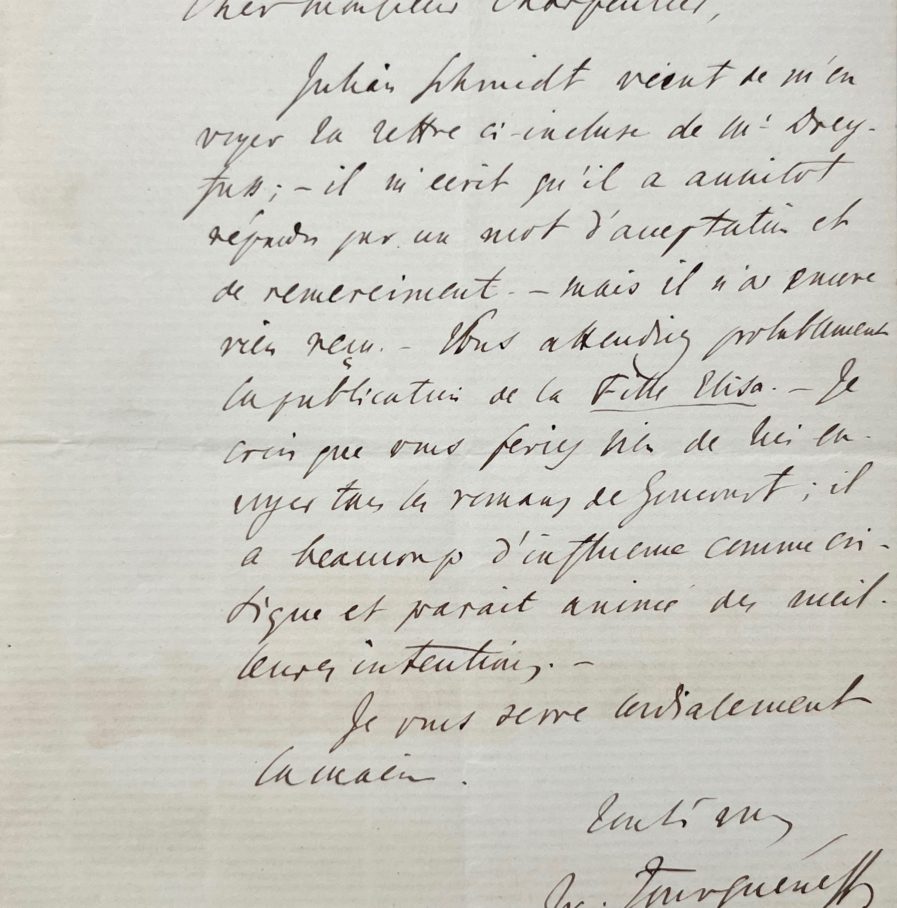 Cher Monsieur Charpentier,
Julian Schmidt vient de m'en
voyer la lettre ci-incluse de Mr Drey-
fuss; – il m'écrit qu'il a aussitôt
répondu par un mot d'acceptation et
de remerciment. – mais il n'a encore
rien reçu. – Vous attendiez probablement
la publication de la Fille Elisa. – Je
crois que vous feriez bien de lui en-
voyer tous les romans de Goncourt; il
a beaucoup d'influence comme cri-
tique et parait animé des meil-
leures intentions. –
Je vous serre cordialement
la main.
Tout à vous
Iv. Tourguéneff